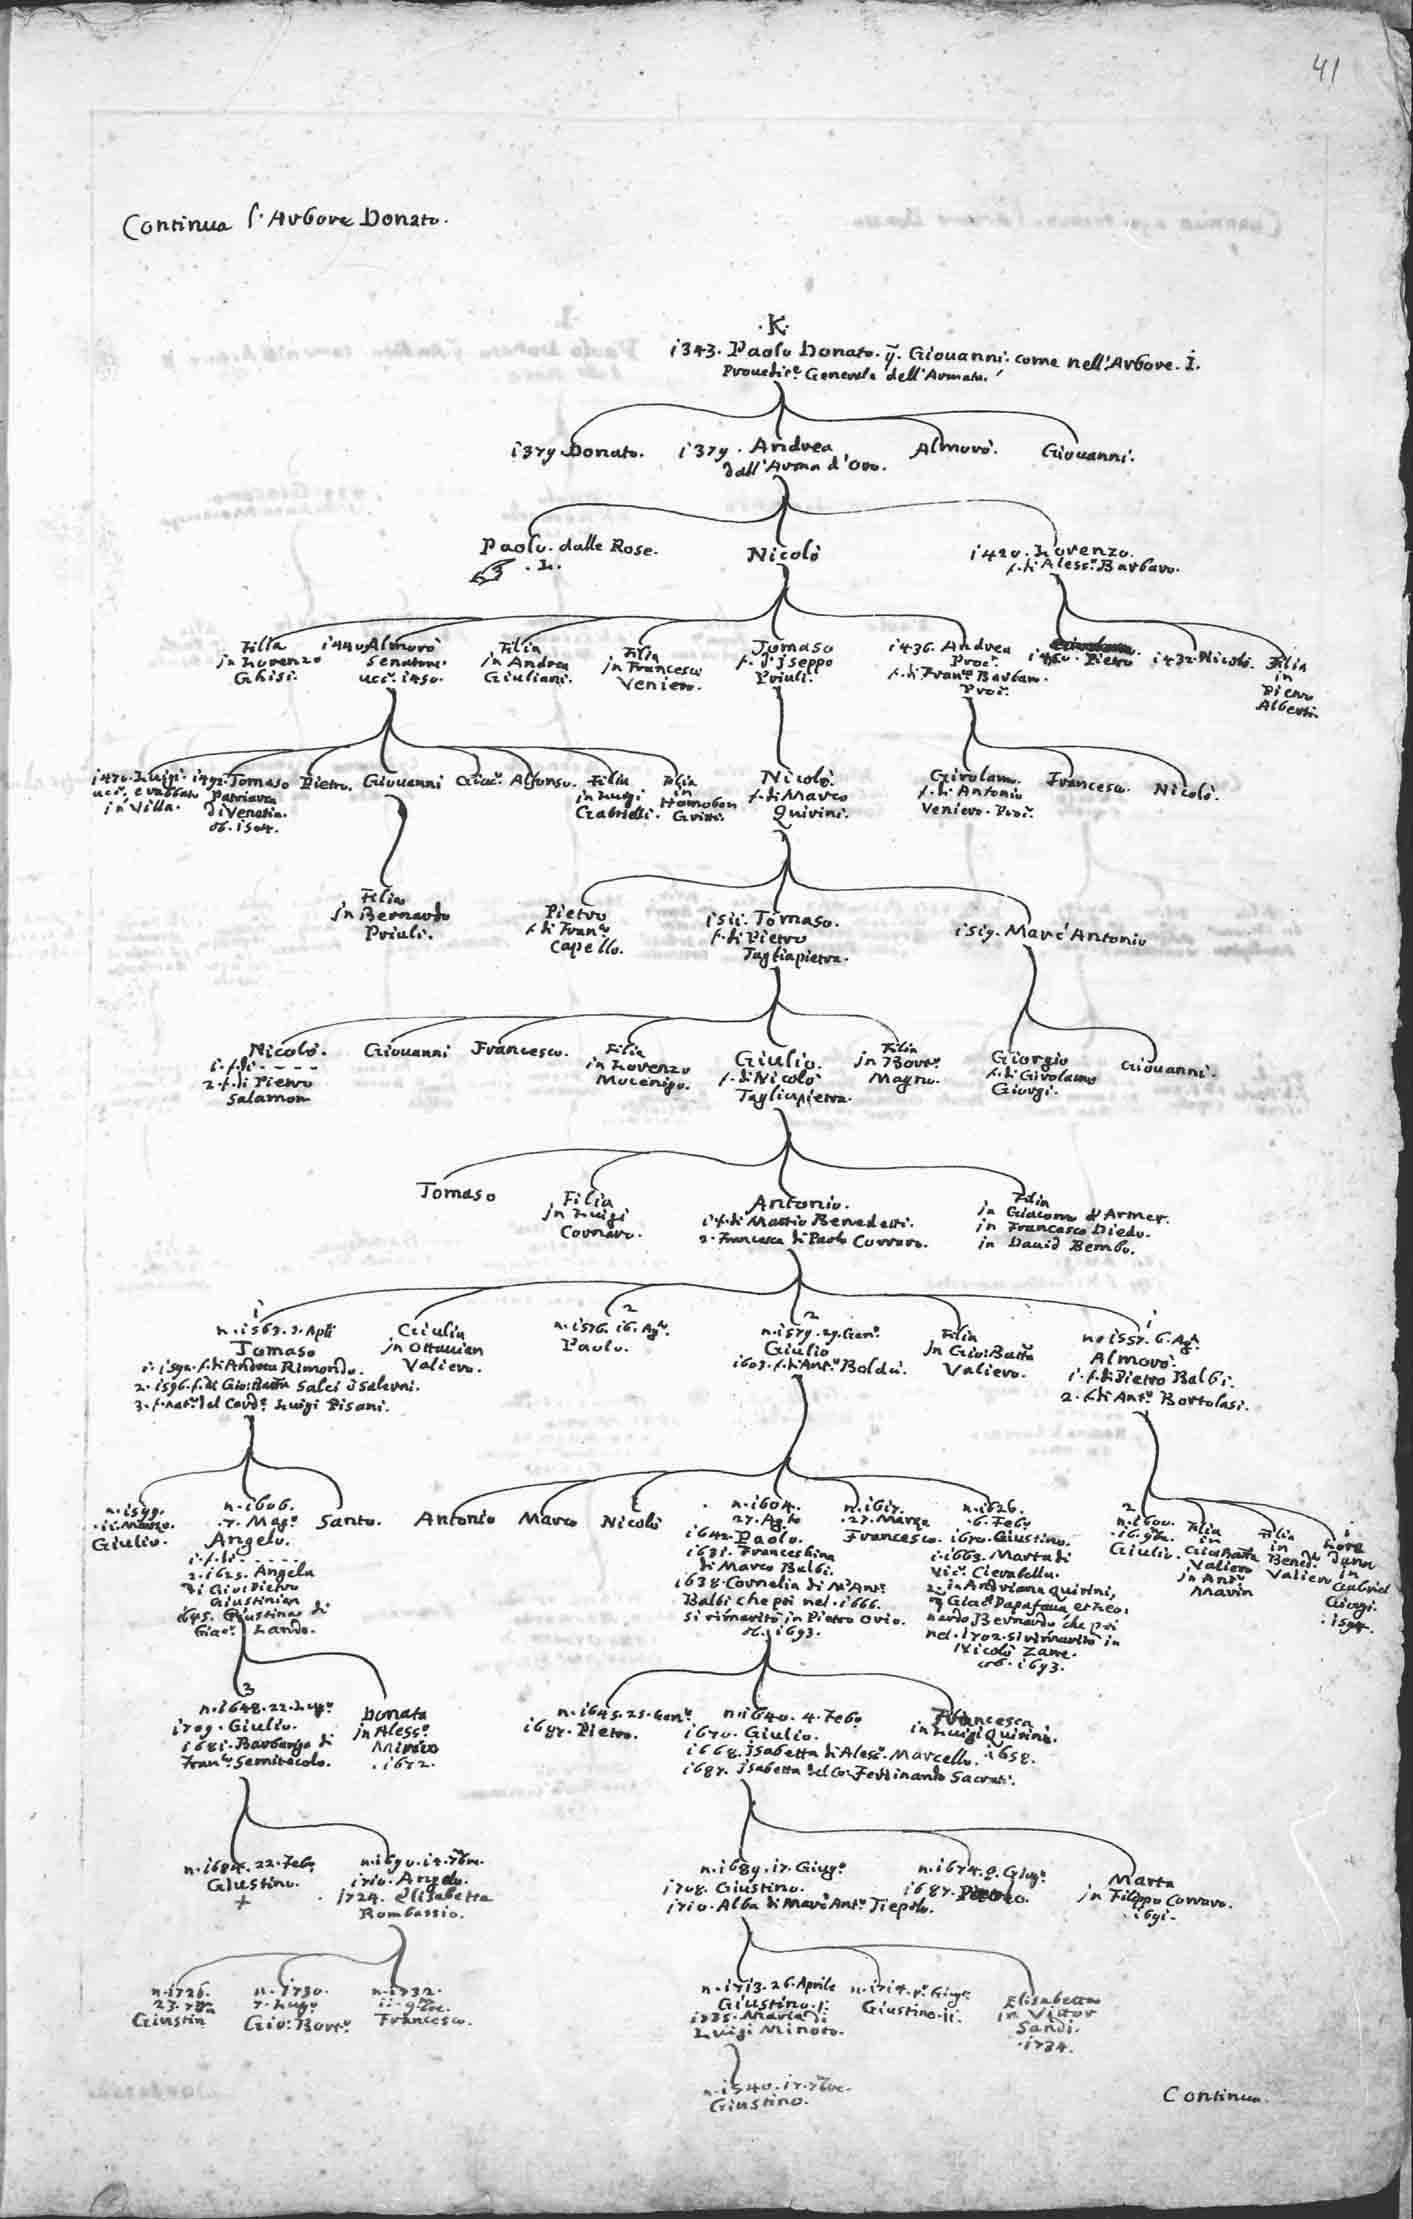 41
Continua l'Arbore Donato.
.K.
i343. Paolo Donato. q. Giovanni. come nell'Arbore. I.
Provedit.r Generale dell'Armata.
i379. Donato.
i379. Andrea
dall'Arma d'Oro.
Almorò.
Giovanni.
Paolo. dalle Rose.
Nicolò
i420. Lorenzo.
f. di Aless.o Barbaro.
Filia
in Lorenzo
Ghisi.
i440 Almorò
Senatore.
ucc. i450.
Filia
in Andrea
Giuliani.
Filia
in Francesco
Veniero.
Tomaso
f. d'Iseppo
Priuli.
i436. Andrea
Proc.r
f. di Fran.co Barbaro.
Proc.r
Pietro
i432. Nicolò.
Filia
in
Pietro
Alberti.
Luigi.
in Villa.
i492. Tomaso
Patriarca
di Venetia.
ob. i504.
Pietro.
Giovanni
Giac.o
Alfonso.
Filia
in Luigi
Gabrielli.
Filia
in
Homobon
Gritti.
Nicolò.
f. di Marco
Quirini.
Girolamo.
f. di Antonio
Veniero. Proc.r
Francesco.
Nicolò.
Filia
in Bernardo
Priuli.
Pietro
f. di Fran.co
Capello.
i5ii. Tomaso.
f. di Pietro
Tagliapietra.
i5i9. Marc'Antonio
Nicolò.
i. f. di - - - -
2. f. di Pietro
Salamon
Giovanni
Francesco.
Filia
in Lorenzo
Mocenigo.
Giulio.
f. di Nicolò
Tagliapietra.
Filia
in Bort.o
Magno.
Giorgio
f. di Girolamo
Giorgi.
Giovanni.
Tomaso
Filia
in Luigi
Cornaro.
Antonio.
i. f. di Mattio Benedetti.
2. Francesca di Paolo Corraro.
Filia
in Giacomo d'Armer.
in Francesco Diedo.
in David Bembo.
i
Tomaso
i. i592. f. di Andrea Rimondo.
2. i596. f. di Gio: Batta Salci ò Salerni.
3. f. nat. del Card.e Luigi Pisani.
Giulia
in Ottavian
Valiero.
2
n. i576. i6. Ag.o
Paolo.
2
n. i579. 29. Gen.o
Giulio
i603. f. di Ant.o Boldù.
Filia
in Gio: Batta
Valiero.
i
n. i557. 6. Ag.o
Almorò.
i. f. di Pietro Balbi.
2. f. di Ant.o Bortolasi.
n. i599.
.ii. Marzo.
Giulio.
n. i606.
.7. Mag.o
Angelo.
i. f. di - - - -
2. i625. Angela
di Gio: Pietro
Giustinian
i645. Giustina di
Giac.o Lando.
Santo.
Antonio
Marco
Nicolò
n. i604.
27. Ag.to
i642. Paolo.
i631. Franceschina
di Marco Balbi.
i638. Cornelia di M. Ant.o
Balbi che poi nel. i666.
si rimaritò in Pietro Orio.
ob. i693.
n. i617.
.27. Marzo
Francesco.
n. i626.
.6. Feb.o
i670. Giustino.
i. i663. Marta di
Vic.o Cierabella.
in Andriana Quirini,
Giac.o Papafava, et Leo:
nardo Bernardo che poi
nel. i702. si rimaritò in
Nicolò Zane.
ob. i693.
2
n. i600.
.i6. 9bre.
Giulio.
Filia
in
Gio: Batta
Valiero
in Ant.o
Marin
Filia
in
Bened.o
Valiero
i
in
Gabriel
Giorgi.
. i594.
3
n. i648. 22. Lug.o
i709. Giulio.
i681. Barbariga di
Fran.co Semitecolo.
Donata
in Aless.o
Minio
. i672.
n. i645. 25. Gen.o
i687. Pietro.
n. i640. 4. Feb.o
i670. Giulio.
i668. Isabetta di Aless.o Marcello.
i687. Isabetta del Co: Ferdinando Sacrati.
Francesca
in Luigi Quirini.
. i658.
n. i684. 22. Feb.o
Giustino.
+
n. i690. i4. 7bre.
i710. Angelo.
i724. Elisabetta
Rombassio.
n. i689. i7. Giug.o
i708. Giustino.
i710. Alba di Marc'Ant.o Tiepolo.
n. i674. 9. Giug.o
i687. Pietro.
Marta
in Filippo Corraro.
. i691.
n. i726.
23.
Giustin
n. i730.
7. Lug.o
Gio: Bort.o
n. i732.
ii. 9bre.
Francesco.
n. i713. 26. Aprile
Giustino. I.
i735. Maria di
Luigi Minoto.
Giustino. ii.
Elisabetta
in Vittor
Sandi.
. i734.
n. i740. i7. 7bre.
Giustino.
Continua.